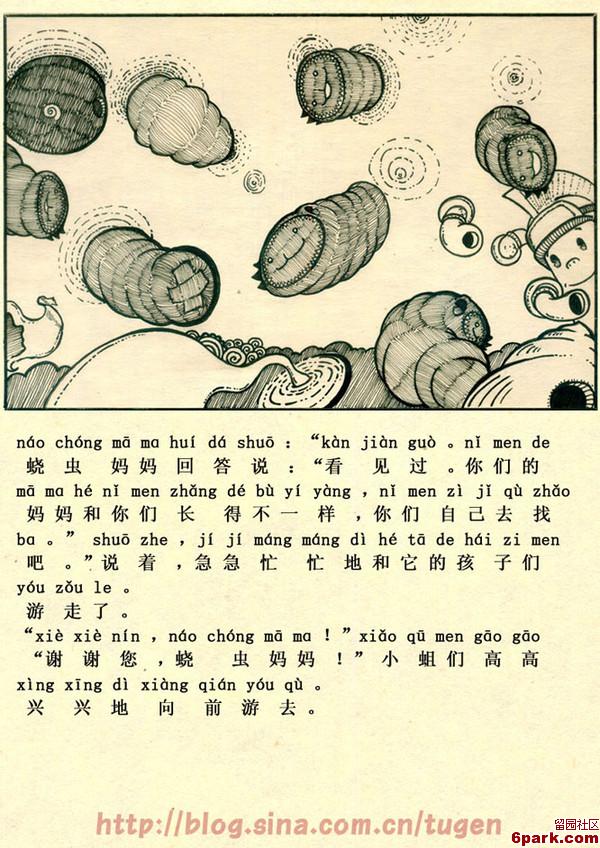 náo chóng mā ma huí dá shuō : “kàn jiàn guò 。nǐ men de
蛲 虫 妈 妈 回 答 说 :“看 见 过 。你 们 的
mā ma hé nǐ men zhǎng dé bù yí yàng , nǐ men zì jǐ qù zhǎo
妈 妈 和 你 们 长 得 不 一 样 ,你 们 自 己 去 找
ba 。” shuō zhe , jí jí máng máng dì hé tā de hái zi men
吧 。”说 着 ,急 急 忙 忙 地 和 它 的 孩 子 们
yóu zǒu le 。
游 走 了 。
“xiè xiè nín , náo chóng mā ma ! ”xiǎo qū men gāo gāo
“谢 谢 您 ,蛲 虫 妈 妈 !”小 蛆 们 高 高
xìng xīng dì xiàng qián yóu qù 。
兴 兴 地 向 前 游 去 。
http://blog.sina.com.cn/tugen
留园社区
6park.com